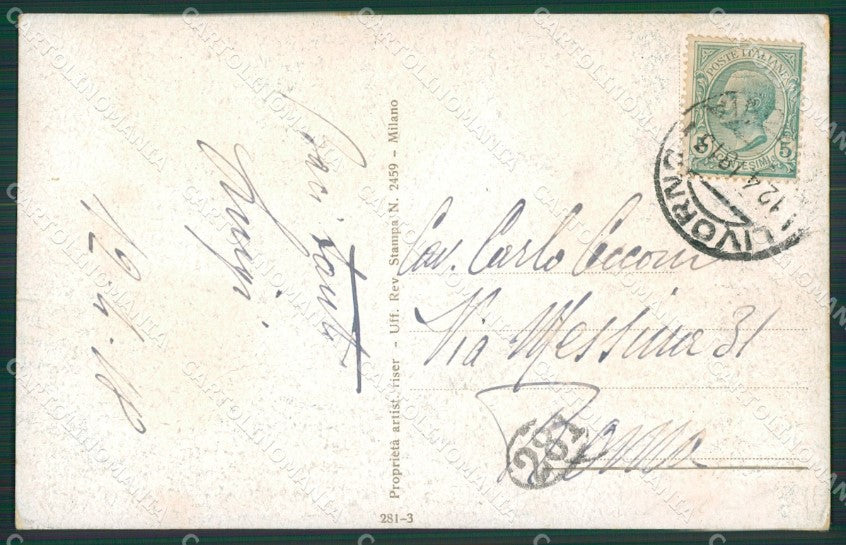 Baci tanti
Luigi
12.4.18
Proprietà artist. riser - Uff. Rev. Stampa N. 2459 - Milano
281-3
POSTE ITALIANE
CENTESIMI 5
LIVORNO
12.4.18
Cav. Carlo Cecconi
Via Messina 31
Roma
281
CARTOLINOMANIA